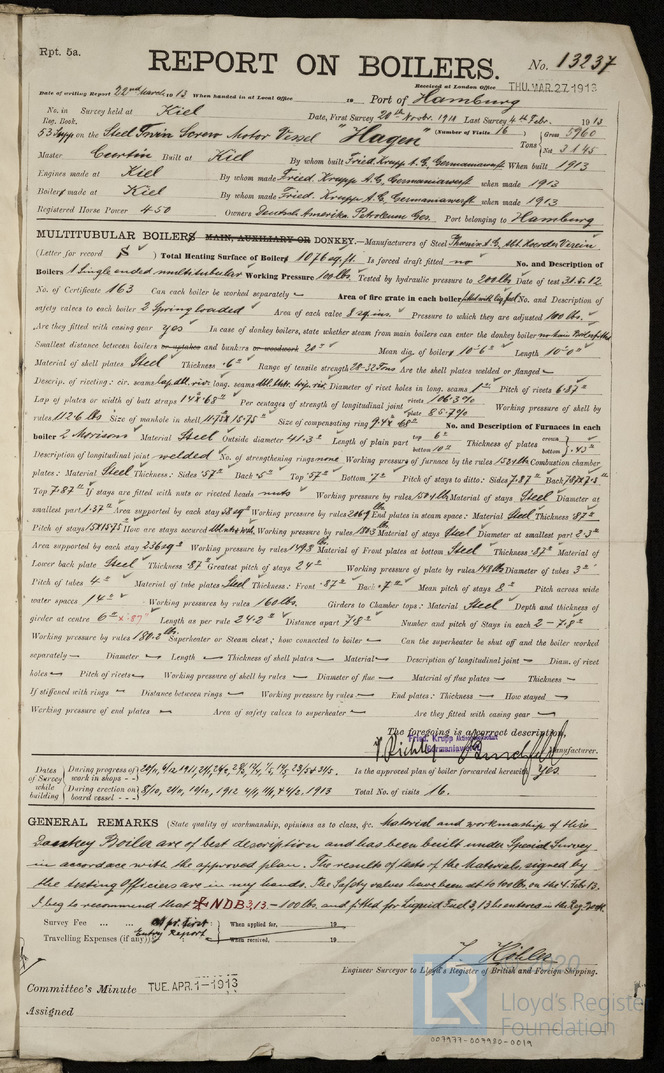 Rpt. 5a.
REPORT ON BOILERS.
No. 13237
Received at London Office THU. MAR. 27 1913
Date of writing Report 22nd March 1913 When handed in at Local Office 19 Port of Hamburg
No. in Reg. Book. Survey held at Kiel Date, First Survey 20th Novbr. 1911 Last Survey 4th Febr. 1913
53 Supp on the Steel Twin Screw Motor Vessel "Hagen" (Number of Visits 16) Tons Gross 5960 Net 3145
Master Built at Kiel By whom built Fried. Krupp A.G. Germaniawerft When built 1913
Engines made at Kiel By whom made Fried. Krupp A.G. Germaniawerft when made 1913
Boilers made at Kiel By whom made Fried. Krupp A.G. Germaniawerft when made 1913
Registered Horse Power 450 Owners Deutsch Amerika. Petroleum Ges. Port belonging to Hamburg
MULTITUBULAR BOILERS MAIN, AUXILIARY OR DONKEY.—Manufacturers of Steel Phoenix A.G. Abt. Hoerder Verein
(Letter for record S) Total Heating Surface of Boilers 1076 sq. ft. Is forced draft fitted no No. and Description of
Boilers 1 Single ended multitubular Working Pressure 100 lbs. Tested by hydraulic pressure to 200 lbs. Date of test 31.5.12
No. of Certificate 163 Can each boiler be worked separately — Area of fire grate in each boiler fitted with liq. fuel No. and Description of
safety valves to each boiler 2 Spring loaded Area of each valve 8 sq. ins. Pressure to which they are adjusted 100 lbs.
Are they fitted with easing gear yes In case of donkey boilers, state whether steam from main boilers can enter the donkey boiler no main Boilers fitted
Smallest distance between boilers or uptakes and bunkers or woodwork 20" Mean dia. of boilers 10'-6" Length 10'-0"
Material of shell plates Steel Thickness .6" Range of tensile strength 28-32 Tons Are the shell plates welded or flanged —
Descrip. of riveting: cir. seams Lap dbl. riv. long. seams dbl. butt. trip. riv. Diameter of rivet holes in long. seams 1" Pitch of rivets 6.87"
Lap of plates or width of butt straps 14.8 Per centages of strength of longitudinal joint rivets 106.3% plate 85.7% Working pressure of shell by
rules 112.6 lbs Size of manhole in shell 11.75 x 15.75 Size of compensating ring No. and Description of Furnaces in each
boiler 2 Morison Material Steel Outside diameter 41.3" Length of plain part top 6" bottom 10" Thickness of plates crown bottom .43"
Description of longitudinal joint welded No. of strengthening rings none Working pressure of furnace by the rules 152 lbs Combustion chamber
plates: Material Steel Thickness: Sides .57" Back .5" Top .57" Bottom .7" Pitch of stays to ditto: Sides 7.87" Back 7.87 x 7.8"
Top 7.87" If stays are fitted with nuts or riveted heads nuts Working pressure by rules 150 lbs Material of stays Steel Diameter at
smallest part 1.37" Area supported by each stay 58 sq" Working pressure by rules 206.9 lbs End plates in steam space: Material Steel Thickness .87"
Pitch of stays 15 x 15.75 How are stays secured dbl. nuts & wash. Working pressure by rules 180.3 lbs Material of stays Steel Diameter at smallest part 2.3"
Area supported by each stay 236 sq" Working pressure by rules 149.3 lbs Material of Front plates at bottom Steel Thickness .87" Material of
Lower back plate Steel Thickness .87" Greatest pitch of stays 24" Working pressure of plate by rules 148 lbs Diameter of tubes 3"
Pitch of tubes 4" Material of tube plates Steel Thickness: Front .87" Back .7" Mean pitch of stays 8" Pitch across wide
water spaces 14" Working pressures by rules 160 lbs. Girders to Chamber tops: Material Steel Depth and thickness of
girder at centre 6" x .87" Length as per rule 24.2" Distance apart 7.8" Number and pitch of Stays in each 2 - 7.8"
Working pressure by rules 180.2 lbs. Superheater or Steam chest; how connected to boiler — Can the superheater be shut off and the boiler worked
separately — Diameter — Length — Thickness of shell plates — Material — Description of longitudinal joint — Diam. of rivet
holes — Pitch of rivets — Working pressure of shell by rules — Diameter of flue — Material of flue plates — Thickness —
If stiffened with rings — Distance between rings — Working pressure by rules — End plates: Thickness — How stayed —
Working pressure of end plates — Area of safety valves to superheater — Are they fitted with easing gear —
The foregoing is a correct description,
Fried. Krupp Aktiengesellschaft
Germaniawerft
Manufacturer.
Dates of Survey while building
During progress of work in shops - -
Is the approved plan of boiler forwarded herewith Yes
During erection on board vessel - - - 1912 1913 Total No. of visits 16.
GENERAL REMARKS (State quality of workmanship, opinions as to class, &c. Material and workmanship of this
Donkey Boiler are of best description and has been built under Special Survey
in accordance with the approved plan. The results of tests of the Materials, signed by
the testing Officiers are in my hands. The Safety valves have been set to 100 lbs. on the 4. Febr. 13.
I beg to recommend that NDB 3,13 – 100 lbs. and fitted for Liquid Fuel 3,13 be entered in the Reg. Book
Survey Fee ... ... When applied for, 19
Travelling Expenses (if any) When received, 19
as pr. First Entry Report
J. Köhler
Engineer Surveyor to Lloyd's Register of British and Foreign Shipping.
Committee's Minute TUE. APR. 1 - 1913
Assigned
LR
© 2020
Lloyd's Register
Foundation
007977-007980-0019